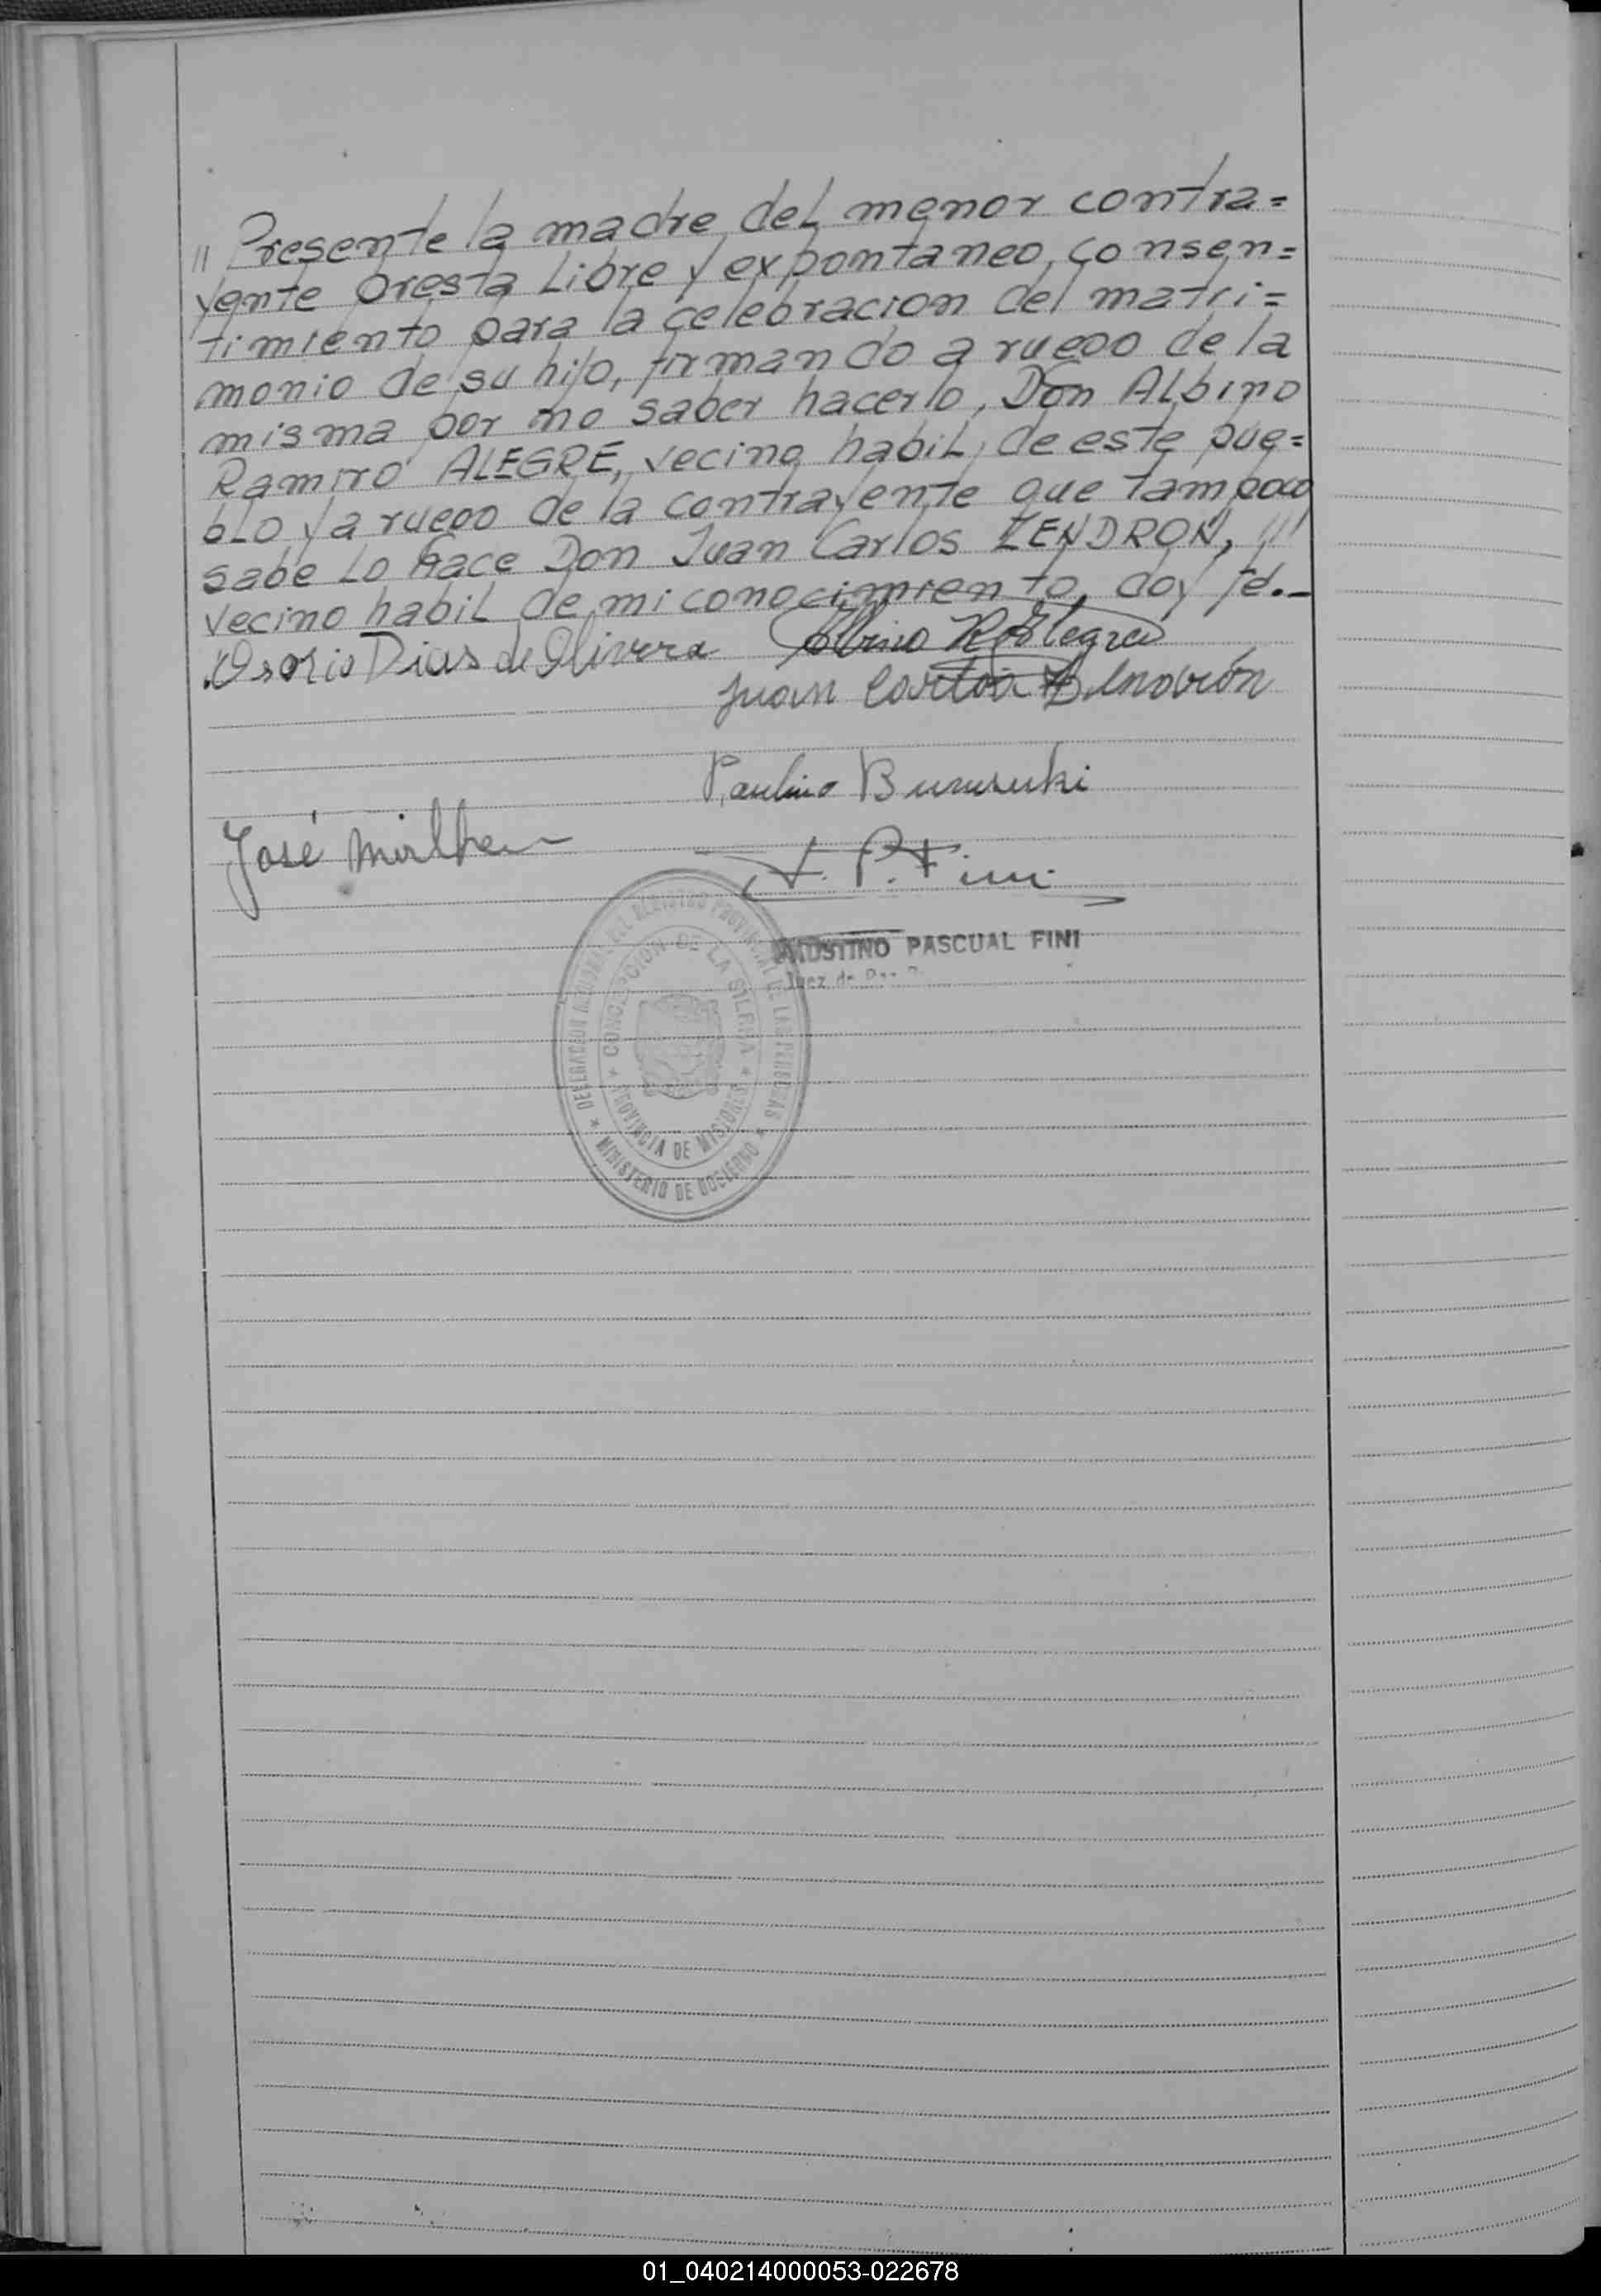 " Presente la madre del menor contra=
yente presta Libre y expontaneo, consen=
timiento para la celebracion del matri=
monio de su hijo, firmando a ruego de la
misma por no saber hacerlo, Don Albino
Ramiro ALEGRE, vecino habil, de este pue=
bLo y a ruego de la contrayente que tampoco
sabe Lo hace Don Juan Carlos ZENDRON, !!!
vecino habil de mi conocimiento, doy fé.-
Osorio Dias de Olivera Albino R. Alegre
Juan Carlos Zendrón
Paulino
José
F. P. Fini
FAUSTINO PASCUAL FINI
Juez de Paz
DELEGACION DEL REGISTRO PROVINCIAL DE LAS PERSONAS
* MINISTERIO DE GOBIERNO *
* CONCEPCION DE LA SIERRA *
PROVINCIA DE MISIONES
01_040214000053-022678